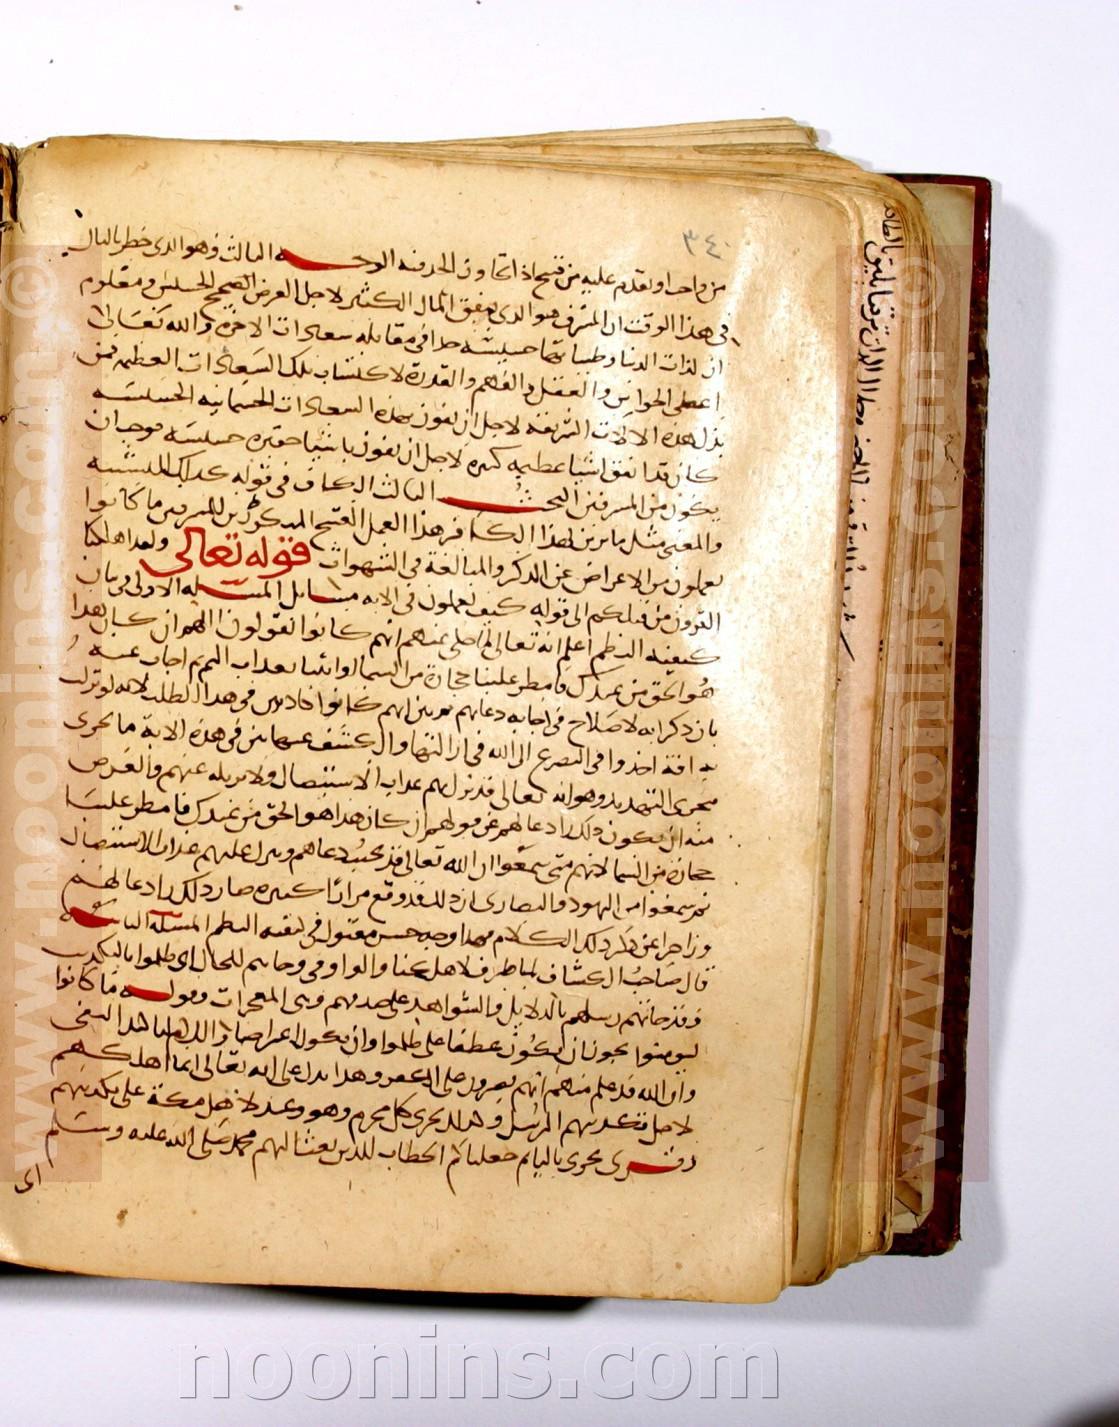 ٣٤٠
من واحد او تقدم عليه من قبيح اذا تجاوز الحد فيه الوجه الثالث وهو الذي خطر بالبال
في هذا الوقت ان المسرف هو الذي ينفق المال الكثير لاجل الغرض الخسيس ومعلوم
ان لذات الدنيا وطيباتها خسيسة جدا في مقابلة سعادات الاخرة والله تعالى
اعطى الحواس والعقل والفهم والقدرة لاكتساب تلك السعادات العظيمة فمن
بذل هذه الالات الشريفة لاجل ان يفوز بهذه السعادات الجسمانية الخسيسة
كان قد انفق اشيا عظيمة كثيرة لاجل ان يفوز باشيا حقيرة خسيسة فوجب ان
يكون من المسرفين البحث الثالث الكاف في قوله كذلك للتشبيه
والمعنى مثل ما زين لهذا الكافر هذا العمل القبيح المذكور زين للمسرفين ما كانوا
يعملون من الاعراض عن الذكر والمبالغة في الشهوات قوله تعالى ولقد اهلكنا
القرون من قبلكم الى قوله كيف تعملون في الاية مسايل المسئلة الاولى في بيان
كيفية النظم اعلم انه تعالى لما حكى عنهم انهم كانوا يقولون اللهم ان كان هذا
هو الحق من عندك فامطر علينا حجارة من السما او ائتنا بعذاب اليم ثم اجاب عنه
بان ذكر انه لا صلاح في اجابة دعايهم ثم بين انهم كانوا كاذبين في هذا الطلب لانه لو نزلت
بهم افة اخذوا في التضرع الى الله في ازالتها والكشف عنها بين في هذه الاية ما يجرى
مجرى التهديد وهو انه تعالى قد ينزل بهم عذاب الاستيصال ولا يزيله عنهم والغرض
منه ان يكون ذلك رادعا لهم عن قولهم ان كان هذا هو الحق من عندك فامطر علينا
حجارة من السما لانهم متى سمعوا ان الله تعالى قد يجيب دعاهم وينزل عليهم عذاب الاستيصال
ثم سمعوا من اليهود والنصارى ان ذلك قد وقع مرارا كثيرة صار ذلك رادعا لهم
وزاجرا عن ذكر ذلك الكلام فهذا وجه حسن مقبول في كيفية النظم المسئلة الثانية
قال صاحب الكشاف لما ظرف لاهلكنا والواو في وجاتهم للحال اى ظلموا بالتكذيب
وقد جاتهم رسلهم بالدلايل والشواهد على صدقهم وهى المعجزات وقوله وما كانوا
ليومنوا يجوز ان يكون عطفا على ظلموا وان يكون اعتراضا واللام لتاكيد النفى
وان الله قد علم منهم انهم يصرون على الكفر وهذا يدل على ان الله تعالى انما اهلكهم
لاجل تكذيبهم الرسل وكذلك يجزى كل مجرم وهو وعيد لاهل مكة على تكذيبهم
وقرى يجزى باليا ثم جعلناكم الخطاب للذين بعث اليهم محمد صلى الله عليه وسلم
اى
www.noonins.com
noonins.com